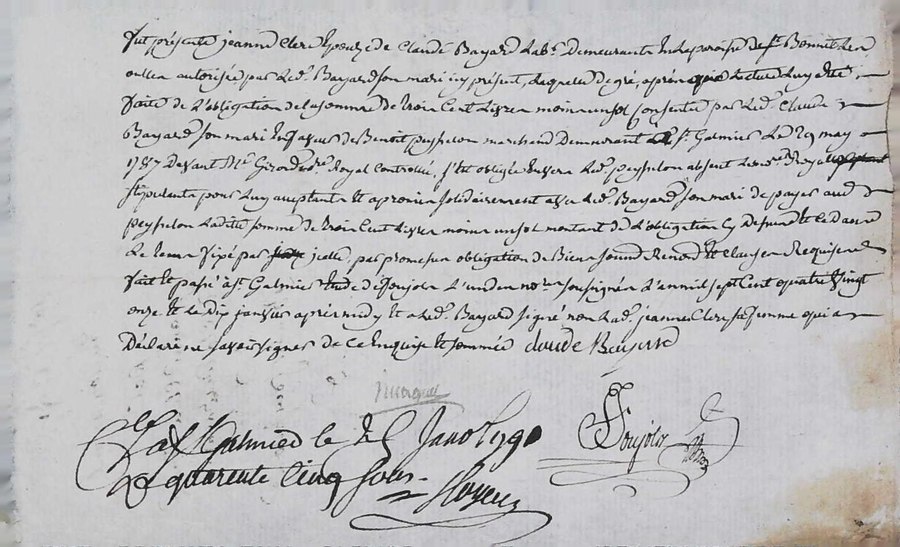 fut présente jeanne Clerc Epouze de Claude Bayard Lab.r Demeurante en la paroisse de St Bonnet Les
oulles autorisée par led. Bayard son mari icy présent, laquelle de gré, après lecture luy a été
faite de L'obligation de la somme de trois Cent Livres moins un sol Consentie par led. Claude
Bayard son mari En faveur de Benoit peysselon marchand Demeurant a St Galmier Le 29 may
1787 Devant Me Girard Royal Controllé, s'est obligée Envers Led. peysselon absent
stipulante pour Luy acceptante et a promis solidairement avec Led. Bayard son mari de payer aud.
peysselon Ladite somme de trois Cent Livres moins un sol montant de L'obligation Cy Dessus et
Le terme fixé par icelle, par promesse obligation de Biens soumis Renon et Clauses Requises
fait et passé a St Galmier Etude de Poujolz L'un des nores soussignés L'an mil sept Cent quatre vingt
onze et le Dix janvier après midy et a Led. Bayard signé non Lad. jeanne Clerc sa femme qui a
Déclaré ne savoir signer de Ce Enquise et sommée Claude Bayard
a St Galmier le Janv 1791
quarente Cinq sols
Poujolz